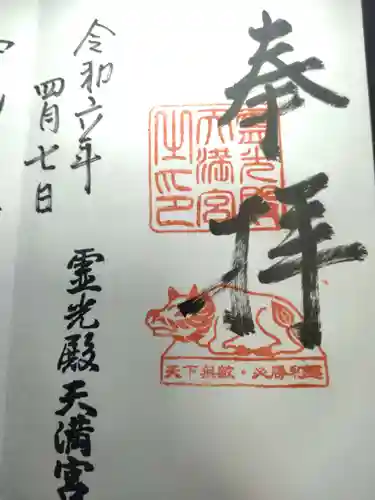 奉拝
霊光殿
天満宮
之印
天下無敵・必勝利運
令和六年
四月七日
霊光殿天満宮